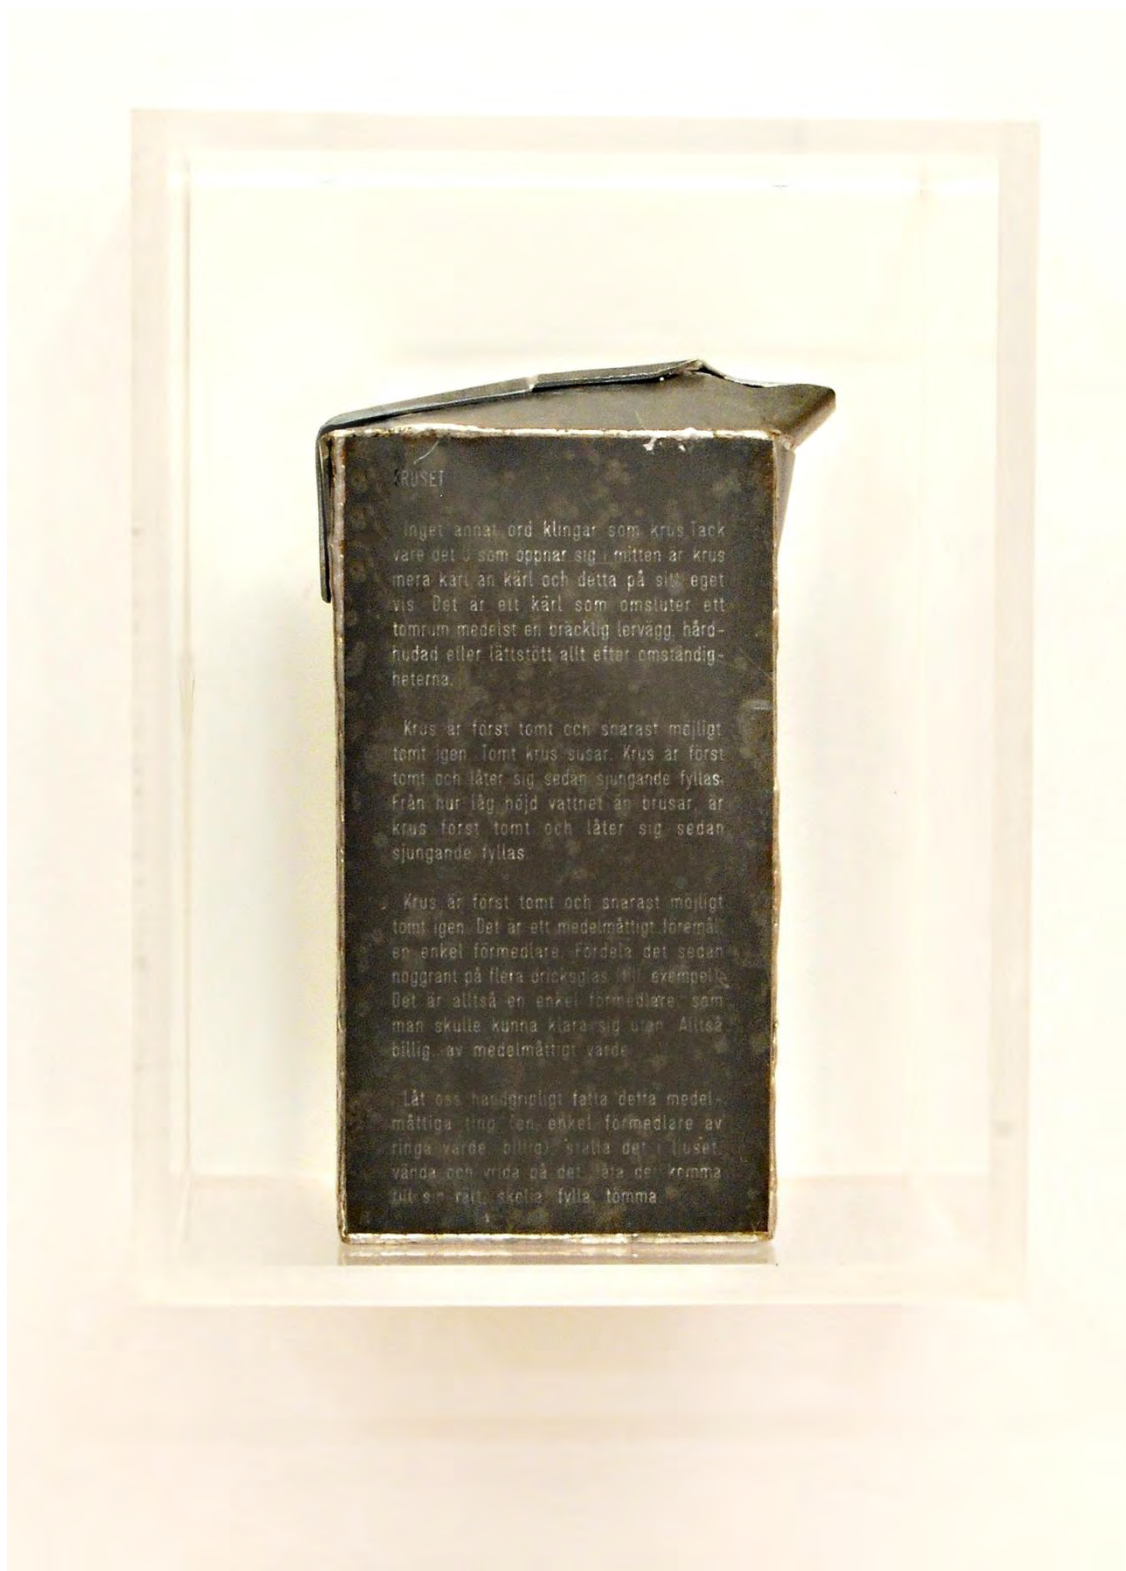 KRUSET
Inget annat ord klingar som krus. Tack
vare det U som öppnar sig i mitten är krus
mera kärl än kärl och detta på sitt eget
vis. Det är ett kärl som omsluter ett
tomrum medelst en bräcklig lervägg, hård-
hudad eller lättstött allt efter omständig-
heterna.
Krus är först tomt och snarast möjligt
tomt igen. Tomt krus susar. Krus är först
tomt och låter sig sedan sjungande fyllas.
Från hur låg höjd vattnet än brusar, är
krus först tomt och låter sig sedan
sjungande fyllas.
Krus är först tomt och snarast möjligt
tomt igen. Det är ett medelmåttigt föremål,
en enkel förmedlare. Fördela det sedan
noggrant på flera dricksglas (till exempel).
Det är alltså en enkel förmedlare, som
man skulle kunna klara sig utan. Alltså
billig, av medelmåttigt värde.
Låt oss handgripligt fatta detta medel-
måttiga ting (en enkel förmedlare av
ringa värde, billig), ställa det i ljuset,
vända och vrida på det, låta det komma
till sin rätt, skölja, fylla, tömma.